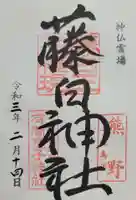 神仏霊場
藤白神社
令和三年二月十四日
熊野